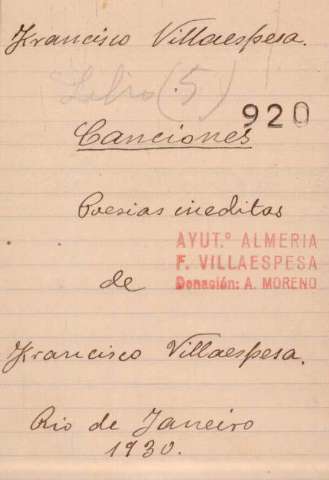 Francisco Villaespesa.
Libro (5)
920
Canciones
Poesias ineditas
AYUT.º ALMERIA
F. VILLAESPESA
Donación: A. MORENO
de
Francisco Villaespesa.
Rio de Janeiro
1930.